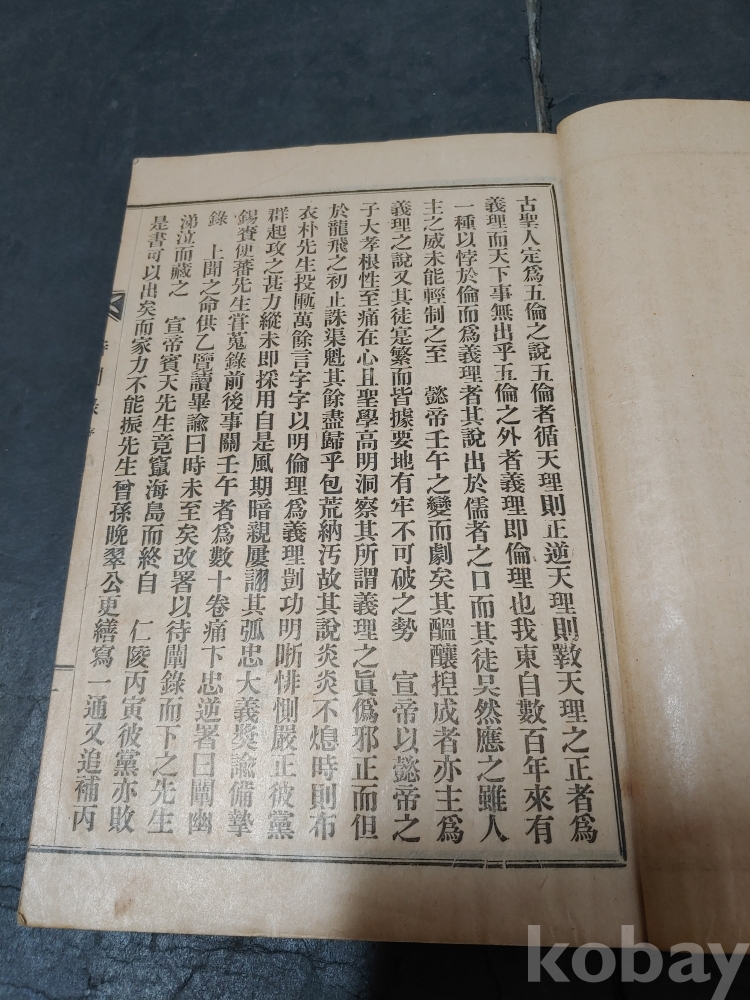 古聖人定爲五倫之說五倫者循天理則正逆天理則斁天理之正者爲
義理而天下事無出乎五倫之外者義理即倫理也我東自數百年來有
一種以悖於倫而爲義理者其說出於儒者之口而其徒吳然應之雖人
主之威未能輕制之至 懿帝壬午之變而劇矣其醞釀揑成者亦主爲
義理之說又其徒寔繁而皆據要地有牢不可破之勢 宣帝以懿帝之
子大孝根性至痛在心且聖學高明洞察其所謂義理之眞僞邪正而但
於龍飛之初止誅渠魁其餘盡歸乎包荒納汚故其說炎炎不熄時則布
衣朴先生投匭萬餘言字字以明倫理爲義理剴切明晰悱惻嚴正彼黨
群起攻之甚力縱未即採用自是風期暗親屢詡其孤忠大義奬諭備摯
錫賚便蕃先生甞蒐錄前後事關壬午者爲數十卷痛下忠逆署曰闡幽
錄 上聞之命供乙覽讀畢諭曰時未至矣改署以待闡錄而下之先生
涕泣而藏之 宣帝賓天先生竟竄海島而終自 仁陵丙寅彼黨亦敗
是書可以出矣而家力不能振先生曾孫晩翠公更繕寫一通又追補丙
kobay